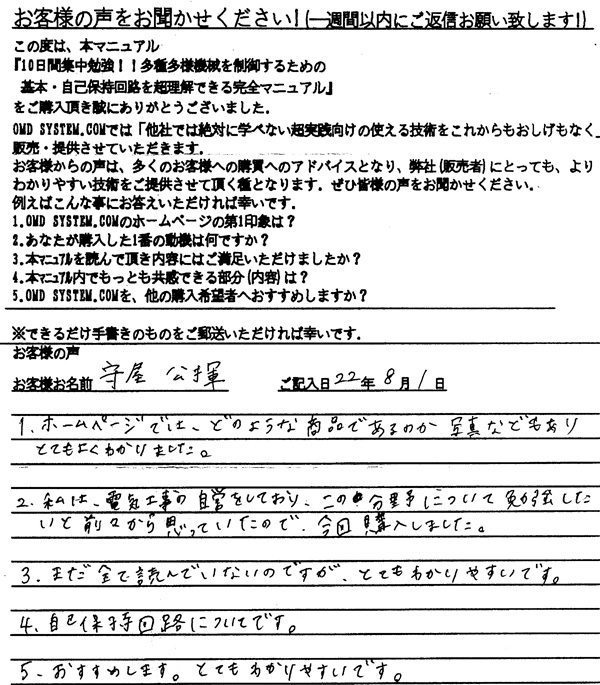 お客様の声をお聞かせください！(一週間以内にご返信お願い致します！)
この度は、本マニュアル
『10日間集中勉強！！多種多様機械を制御するための
基本・自己保持回路を超理解できる完全マニュアル』
をご購入頂き誠にありがとうございました。
OMD SYSTEM.COMでは「他社では絶対に学べない超実践向けの使える技術をこれからもおしげもなく
販売・提供させていただきます。
お客様からの声は、多くのお客様への購買へのアドバイスとなり、弊社(販売者)にとっても、より
わかりやすい技術をご提供させて頂く種となります。ぜひ皆様の声をお聞かせください。
例えばこんな事にお答えいただければ幸いです。
1.OMD SYSTEM.COMのホームページの第1印象は？
2.あなたが購入した1番の動機は何ですか？
3.本マニュアルを読んで頂き内容にはご満足いただけましたか？
4.本マニュアル内でもっとも共感できる部分(内容)は？
5.OMD SYSTEM.COMを、他の購入希望者へおすすめしますか？
※できるだけ手書きのものをご郵送いただければ幸いです。
お客様の声
お客様お名前 守屋 公揮 ご記入日 22年 8月 1日
1. ホームページでは、どのような商品であるのか 写真などもあり
とてもよくわかりました。
2. 私は、電気工事の自営をしており、この分野について勉強した
いと前々から思っていたので、今回購入しました。
3. まだ全て読んでいないのですが、とてもわかりやすいです。
4. 自己保持回路についてです。
5. おすすめします。とてもわかりやすいです。